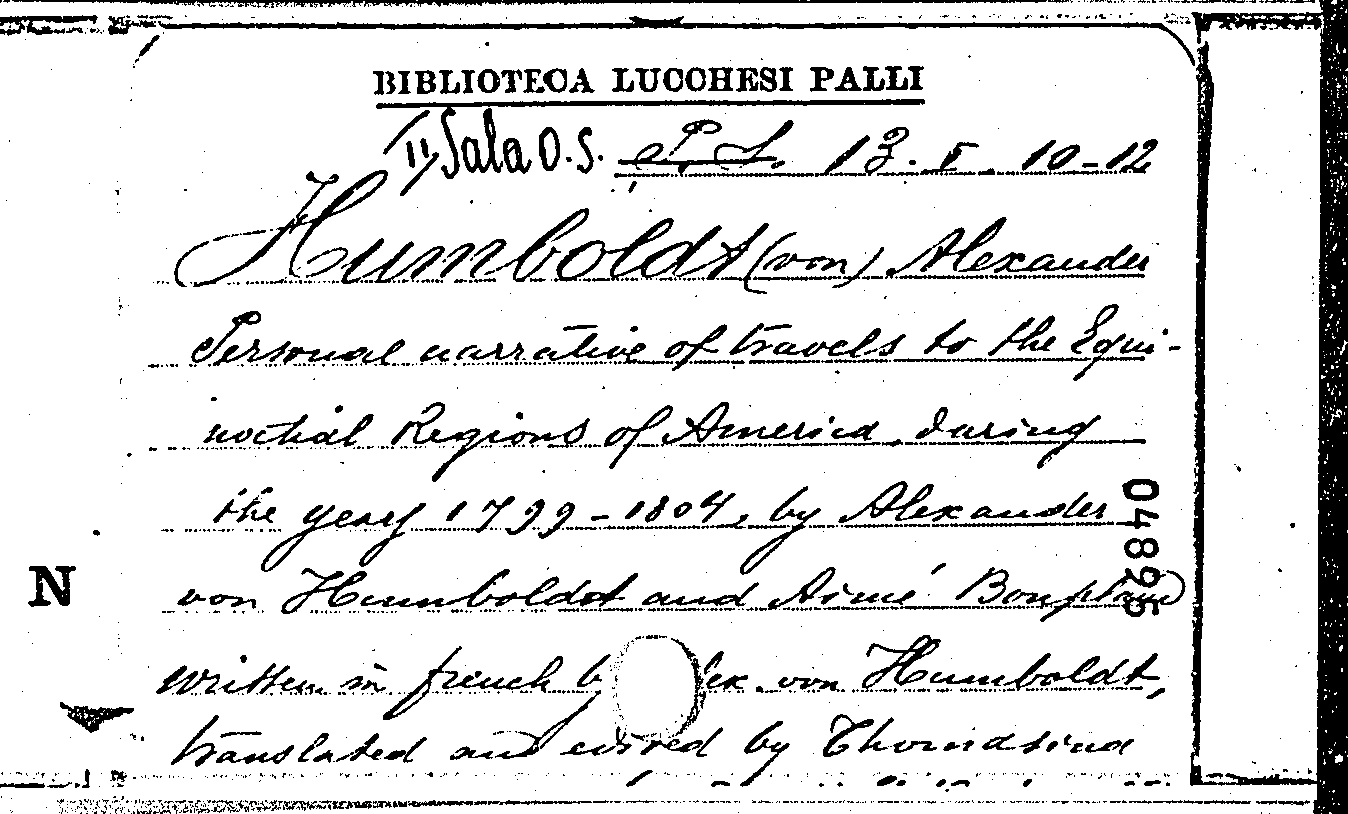 BIBLIOTECA LUCCHESI PALLI
II Sala O.S. P. S. 13. I. 10-12
Humboldt (von) Alexander
Personal narrative of travels to the Equi-
noctial Regions of America, during
the years 1799-1804, by Alexander
von Humboldt and Aimé Bonpland
written in french b lex. von Humboldt,
translated and edited by Thomasina
04895
N